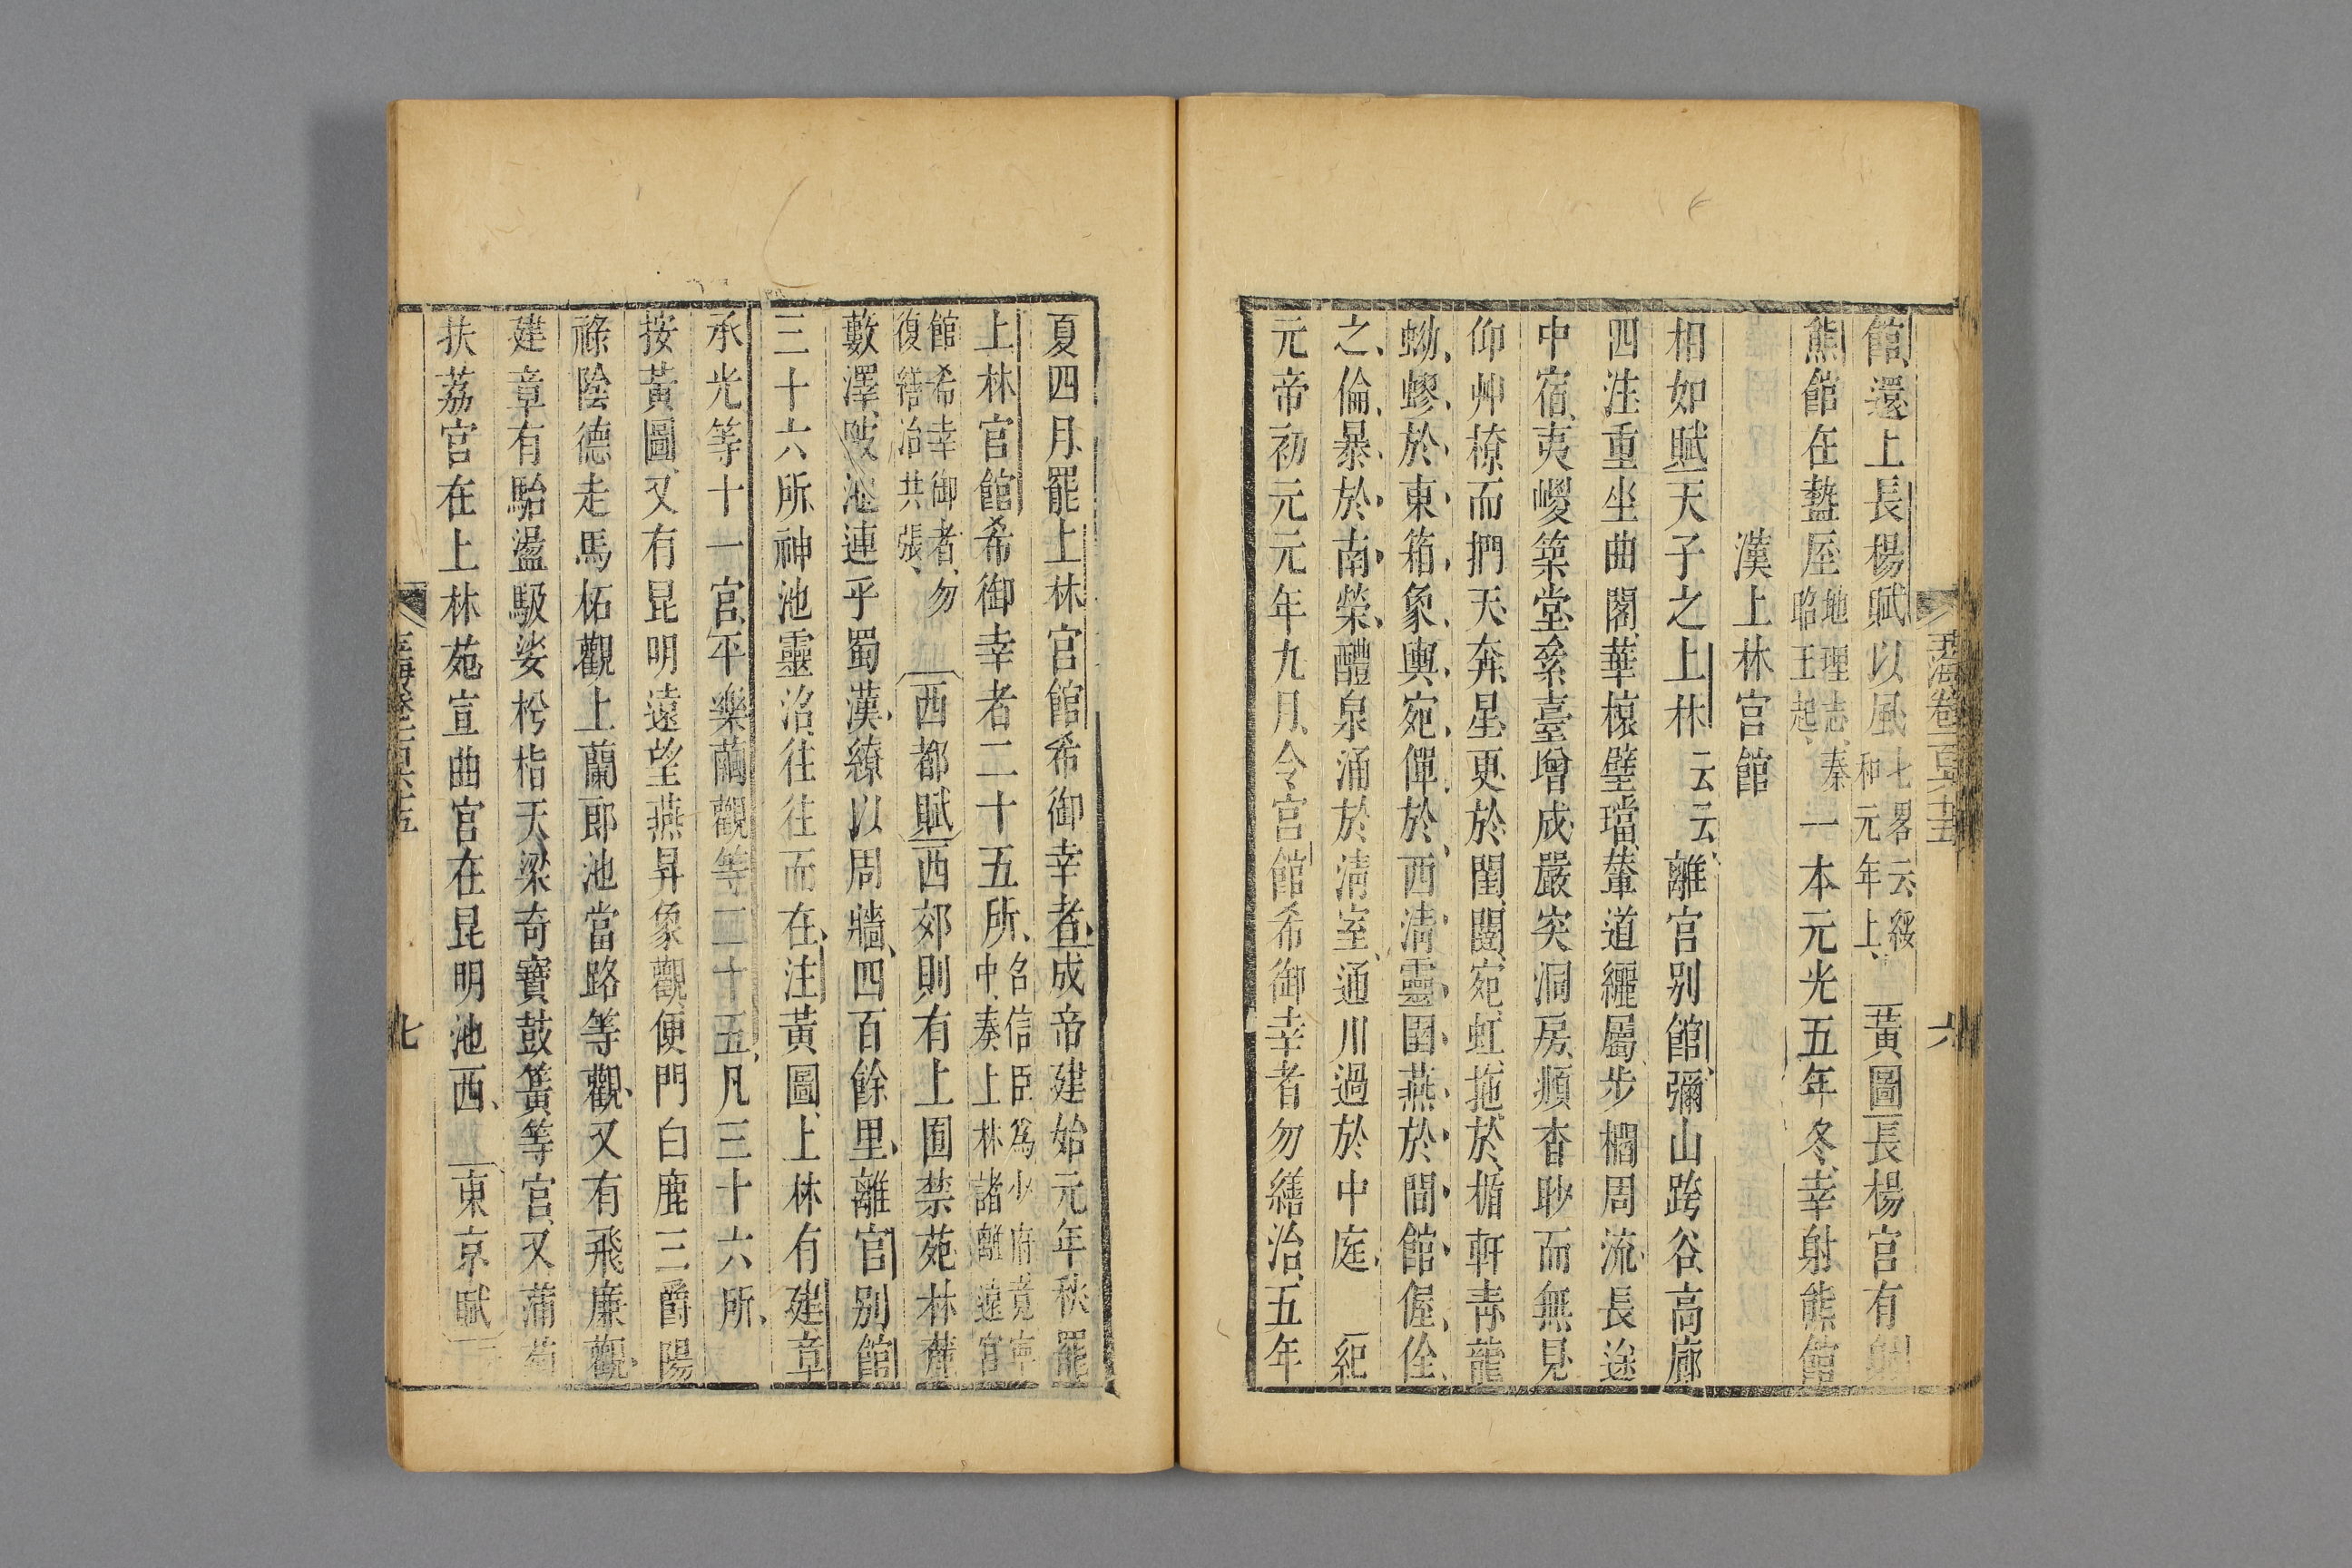 玉海卷一百六十五
六
館還上長楊賦以風七畧云綏和元年上黃圖長楊宮有射
熊館在盩厔地理志秦昭王起一本元光五年冬幸射熊館
漢上林宮館
相如賦天子之上林云云離宮别館彌山跨谷高廊
四注重坐曲閣華榱璧璫輦道纚屬步櫩周流長途
中宿夷嵕築堂絫臺增成嚴突洞房頫杳眇而無見
仰艸橑而捫天奔星更於閨闥宛虹拖於楯軒青龍
蚴蟉於東箱象輿宛僤於西清靈圄燕於間館偓佺
之倫暴於南榮醴泉涌於清室通川過於中庭紀
元帝初元元年九月令宮館希御幸者勿繕治五年
夏四月罷上林宮館希御幸者成帝建始元年秋罷
上林宮館希御幸者二十五所召信臣爲少府竟寧中奏上林諸離遠宮
館希幸御者勿復繕治共張西都賦西郊則有上囿禁苑林麓
藪澤陂池連乎蜀漢繚以周牆四百餘里離宮别館
三十六所神池靈沼往往而在注黃圖上林有建章
承光等十一宮平樂繭觀等二十五凡三十六所
按黃圖又有昆明遠望燕昇象觀便門白鹿三爵陽
祿陰德走馬柘觀上蘭郎池當路等觀又有飛廉觀
建章有駘盪馺娑枍栺天梁奇寶鼓簧等宮又蒲萄
扶荔宮在上林苑宣曲宮在昆明池西東京賦
玉海卷一百六十五
七